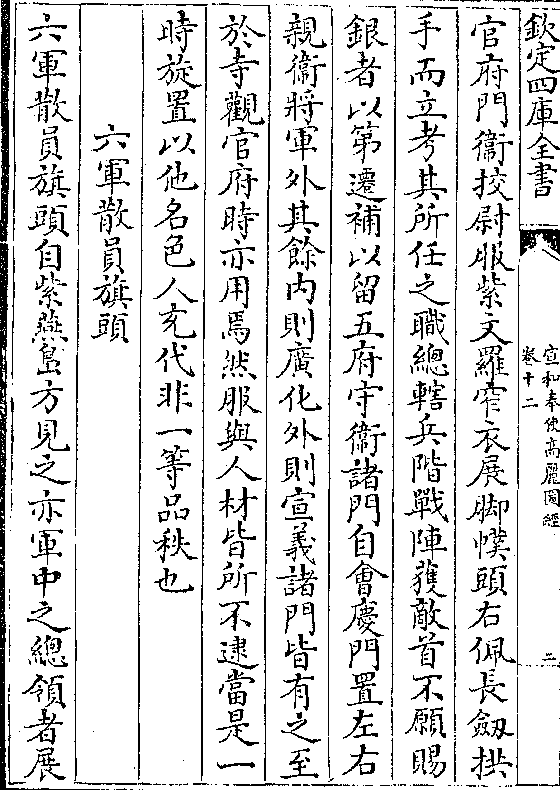 欽定四庫全書
宣和奉使高麗圖經
卷十二
二
官府門衞挍尉服紫文羅窄衣展脚幞頭右佩長劔拱
手而立考其所任之職總轄兵階戰陣獲敵首不願賜
銀者以第遷補以留五府守衞諸門自會慶門置左右
親衞將軍外其餘内則廣化外則宣義諸門皆有之至
於寺觀官府時亦用焉然服與人材皆所不逮當是一
時旋置以他名色人充代非一等品秩也
六軍散員旗頭
六軍散員旗頭自紫燕島方見之亦軍中之總領者展